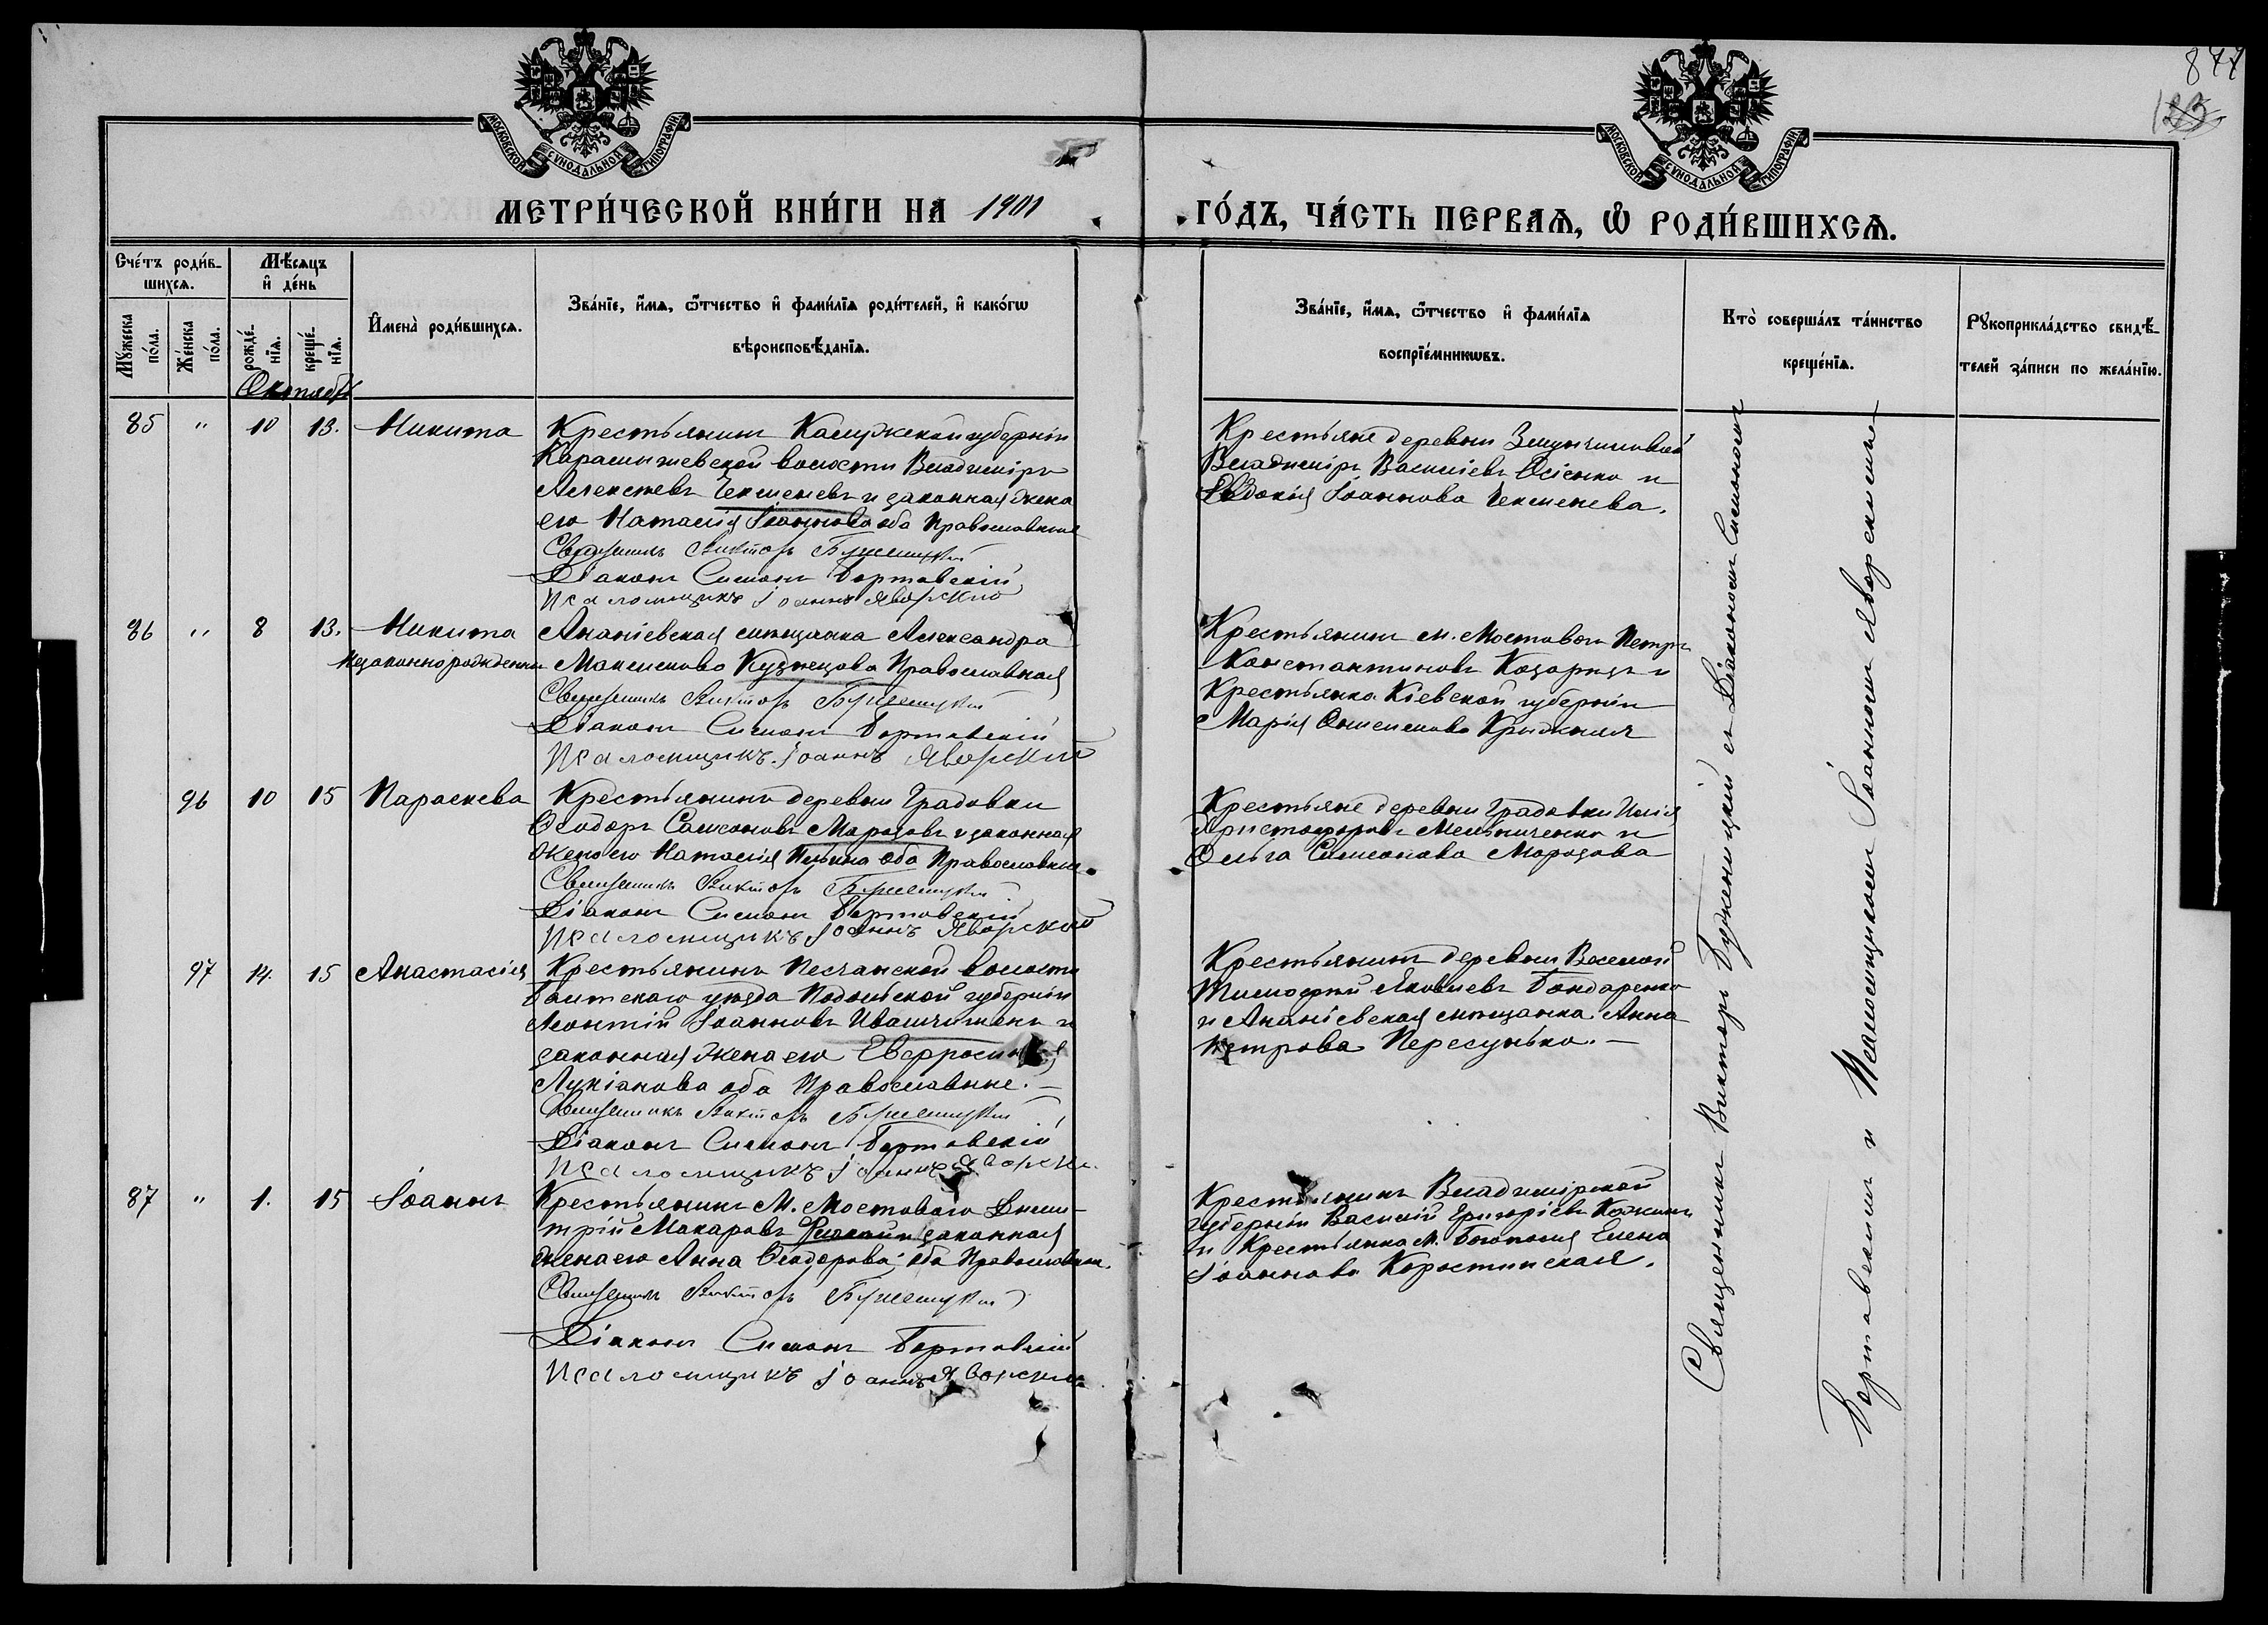 844
123
МОСКОВСКОЙ СѴНОДАЛЬНОЙ ТИПОГРАФІИ
МОСКОВСКОЙ СѴНОДАЛЬНОЙ ТИПОГРАФІИ
МЕТРИ́ЧЕСКОЙ КНИ́ГИ НА 1901
ГО́ДЪ, ЧА́СТЬ ПЕРВАѦ, Ѡ РОДИ́ВШИХСѦ.
Счéтъ роди́в-
шихсѧ.
Мꙋ́жеска
по́ла.
Же́нска
по́ла.
Мѣ́сѧцъ
и҆ де́нь
рожде́-
нїѧ.
креще́-
нїѧ.
И҆менà роди́вшихсѧ.
Зва́нїе, и҆́мѧ, ѻ҆́тчество и҆ фами́лїѧ роди́телей, и҆ како́гѡ
вѣроисповѣ́данїѧ.
Зва́нїе, и҆́мѧ, ѻ҆́тчество и҆ фами́лїѧ
воспрїе́мникѡвъ.
Кто̀ соверша́лъ та́инство
креще́нїѧ.
Рꙋкоприкла́дство свидѣ́-
телей за́писи по жела́нїю.
Октябрь
85 " 10 13. Никита
Крестьянинъ Калужской губерніи
Карамышевской волости Владиміръ
Алексѣевъ Чекменевъ и законная жена
его Наталія Іоаннова оба Православные
Священникъ Викторъ Бужницкій
Діаконъ Симонъ Бортовскій
Псаломщикъ Іоаннъ Яворскій
Крестьяне деревни
Владиміръ Василіевъ Осіенко и
Евдокія Іоаннова Чекменева.
86 " 8 13. Никита
незаконнорожденный
Ананіевская мѣщанка Александра
Максимова Кузнецова Православная
Священникъ Викторъ Бужницкій
Діаконъ Симонъ Бортовскій
Псаломщикъ Іоаннъ Яворскій
Крестьянинъ м. Мостовое Петръ
Константиновъ Козарицъ и
Крестьянка Кіевской губерніи
Марія
96 10 15 Параскева
Крестьянинъ деревни Градовки
Ѳеодоръ Самсоновъ Морозовъ и законная
жена его Наталія Ильина оба Православные.
Священникъ Викторъ Бужницкій
Діаконъ Симонъ Бортовскій
Псаломщикъ Іоаннъ Яворскій
Крестьяне деревни Градовки Илія
Христофоровъ Мельниченко и
Ольга Самсонова Морозова
97 14. 15 Анастасія
Крестьянинъ Песчанской волости
Балтскаго уѣзда Подольской губерніи
Леонтій Іоанновъ Ивашчишенъ и
законная жена его Евфросинія
Лукіанова оба Православные. —
Священникъ Викторъ Бужницкій
Діаконъ Симонъ Бортовскій
Псаломщикъ Іоаннъ Яворскі.
Крестьянинъ деревни Веселой
Тимофей Яковлевъ Бондаренко
и Ананіевская мѣщанка Анна
Петрова Пересунько. —
87 " 1. 15 Іоаннъ
Крестьянинъ М. Мостового Дими-
трій Макаровъ и законная
жена его Анна Ѳеодорова оба Православные.
Священникъ Викторъ Бужницкій
Діаконъ Симонъ Бортовскій
Псаломщикъ Іоаннъ Яворскій
Крестьянинъ Владимірской
губерніи Василій Григоріевъ
и Крестьянка м. Богополя Елена
Іоаннова Коростинская.
Священникъ Викторъ Бужницкій съ Діакономъ Симономъ
Бортовскимъ и Псаломщикомъ Іоанномъ Яворскимъ